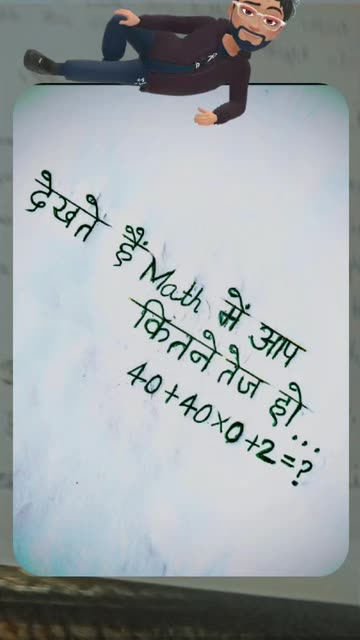 देखते हैं Math में आप
कितने तेज हो...
40+40×0+2=?